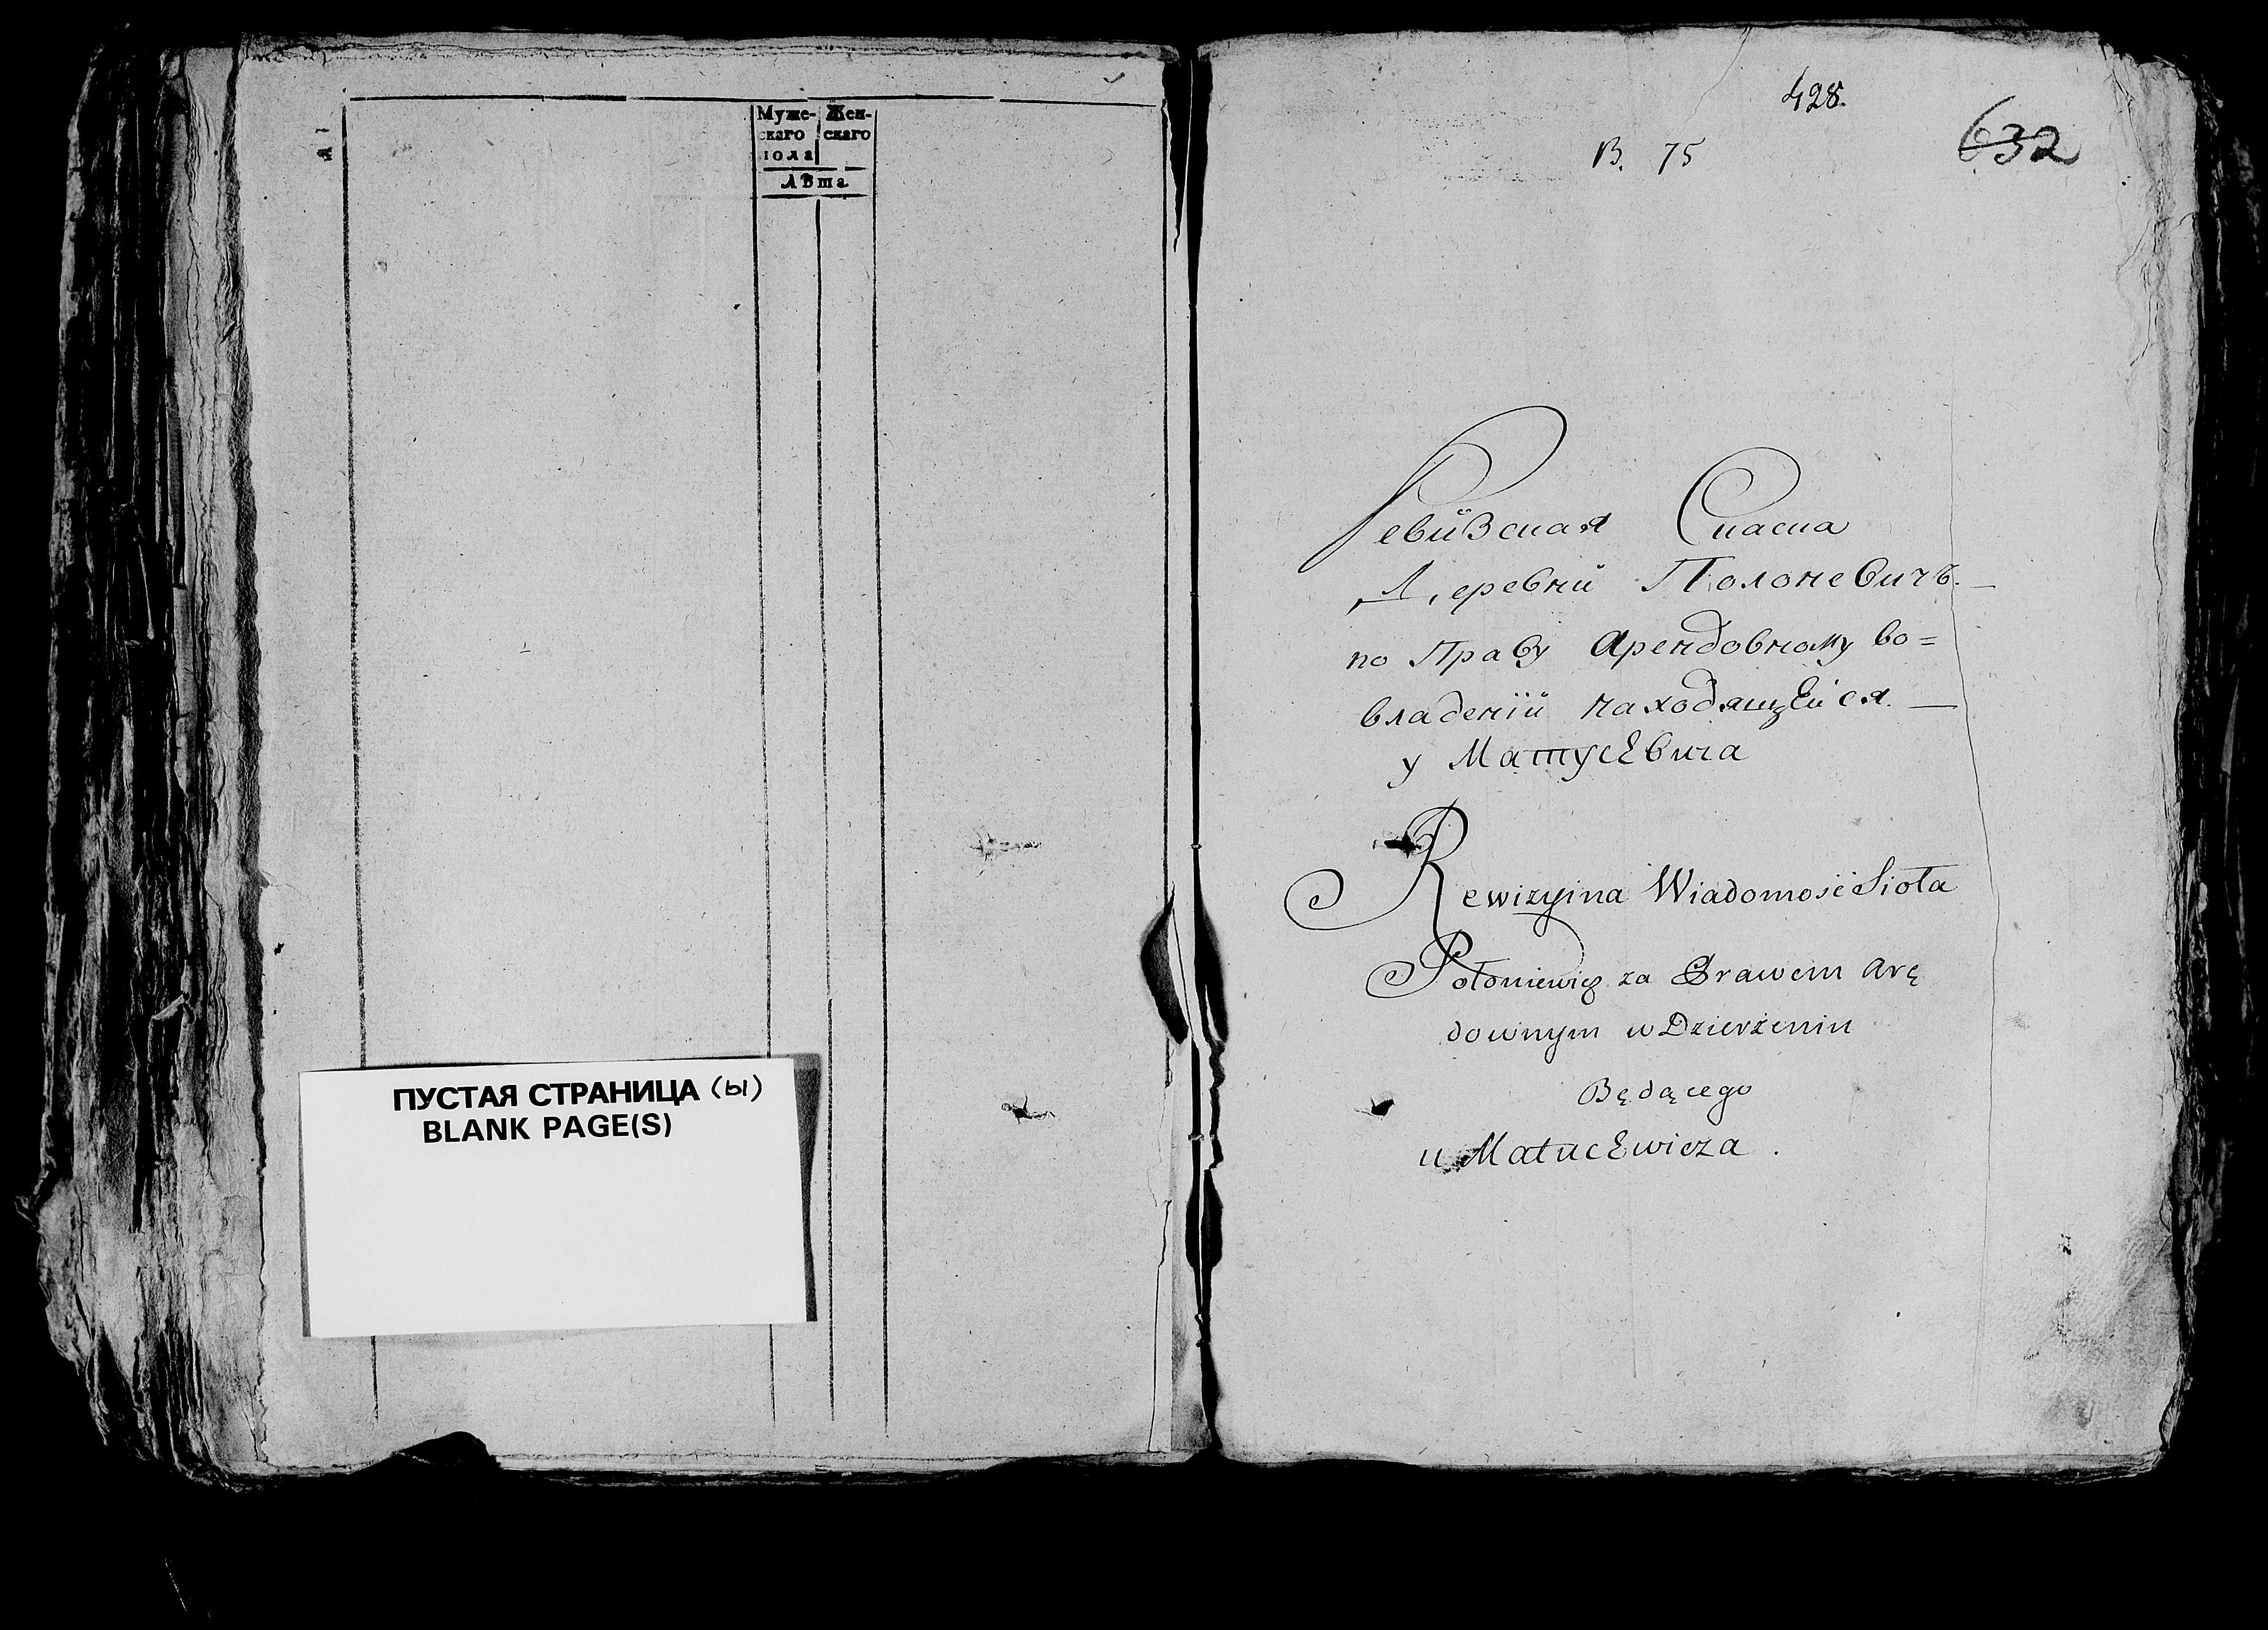 Муже- Жен-
скаго скаго
пола
Лѣта
ПУСТАЯ СТРАНИЦА (Ы)
BLANK PAGE(S)
428.
В. 75
632
Ревизская Скаска
Деревни Полоневичъ.
по Праву Арендовному во=
владении находящейся. —
у Матусевича
Rewizyina Wiadomość Sioła
Połoniewicz za Prawem Arę
downym w Dzierżeniu
Będącego
u Matucewicza .